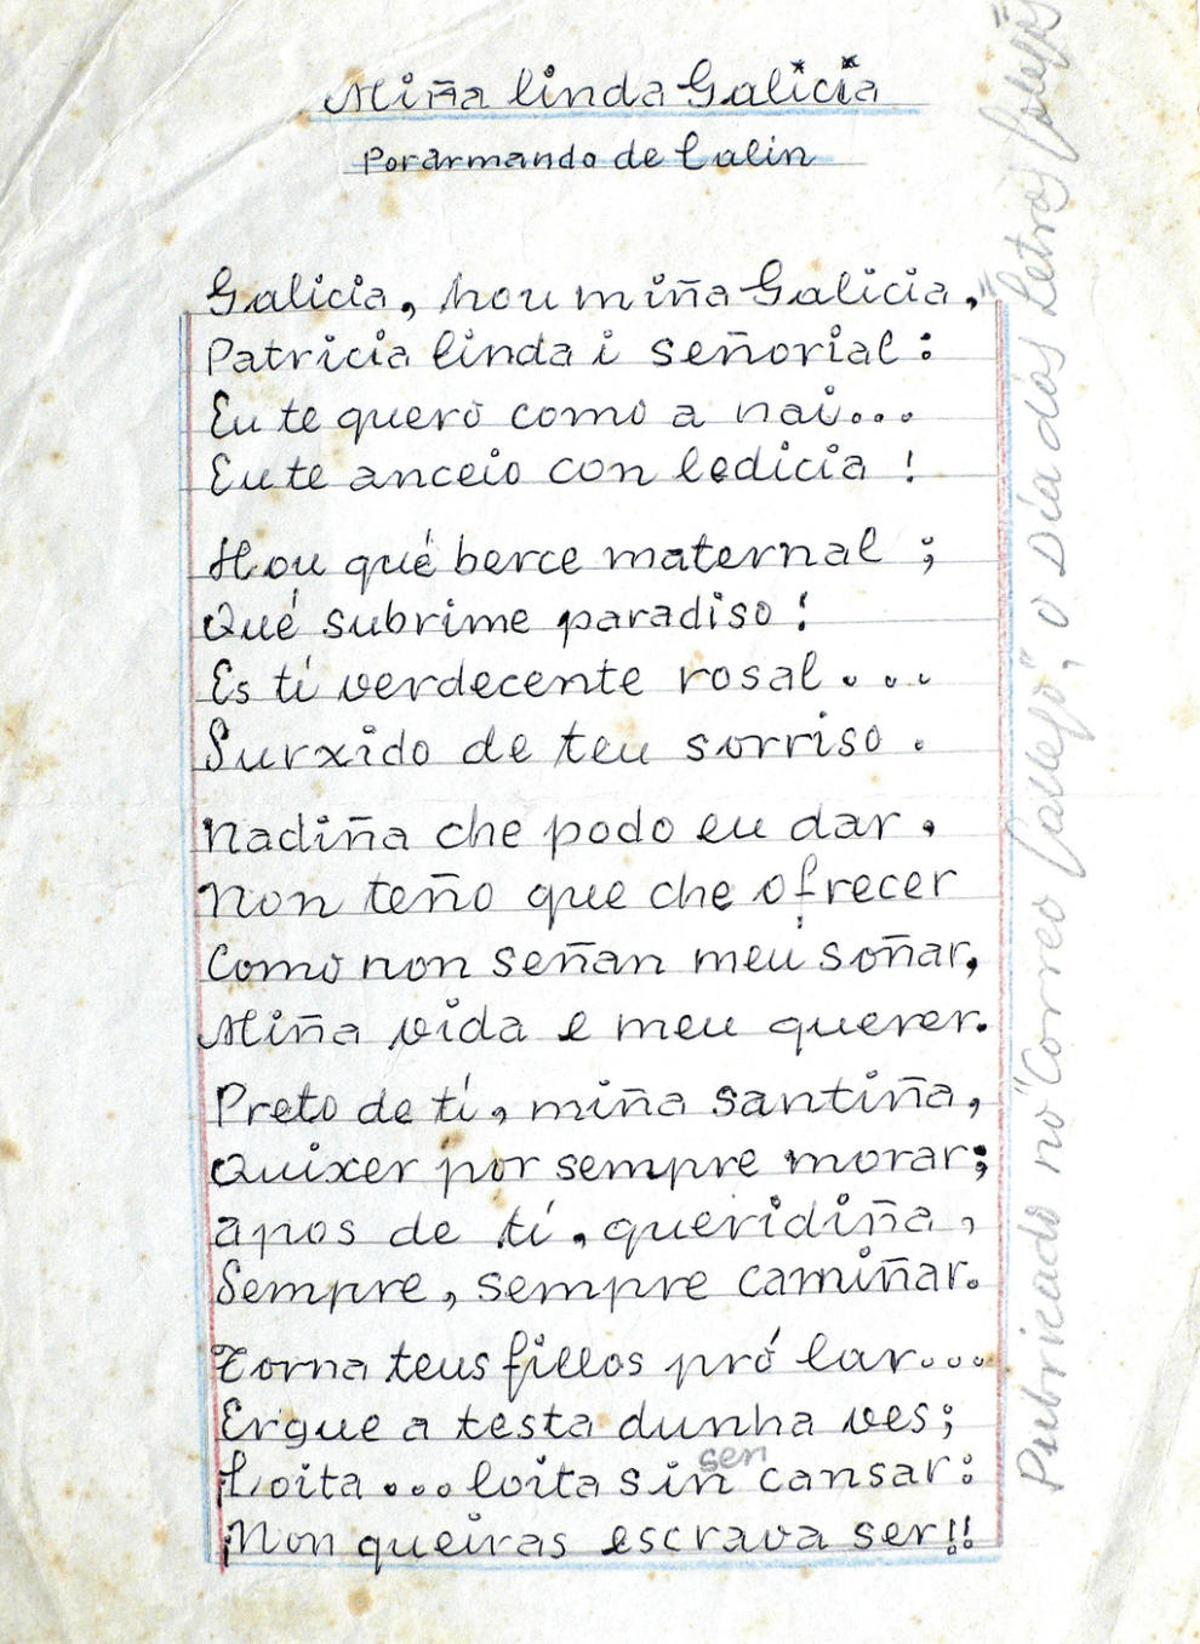 Miña linda Galicia
Por armando de Lalin
Galicia, hou miña Galicia,
Patricia linda i señorial:
Eu te quero como a nai...
Eu te anceio con ledicia!
Hou qué berce maternal;
Qué subrime paradiso!
Es tí verdecente rosal...
Surxido de teu sorriso.
Nadiña che podo eu dar.
Non teño que che ofrecer
Como non señan meu soñar,
Miña vida e meu querer.
Preto de tí, miña santiña,
Quixer por sempre morar;
apos de tí, queridiña,
Sempre, sempre camiñar.
Torna teus fillos pró lar...
Ergue a testa dunha ves;
sen
Loita...loita sin cansar:
¡Non queiras escrava ser!!
Pubricado no "Correo Gallego", o Día das Letras Galegas